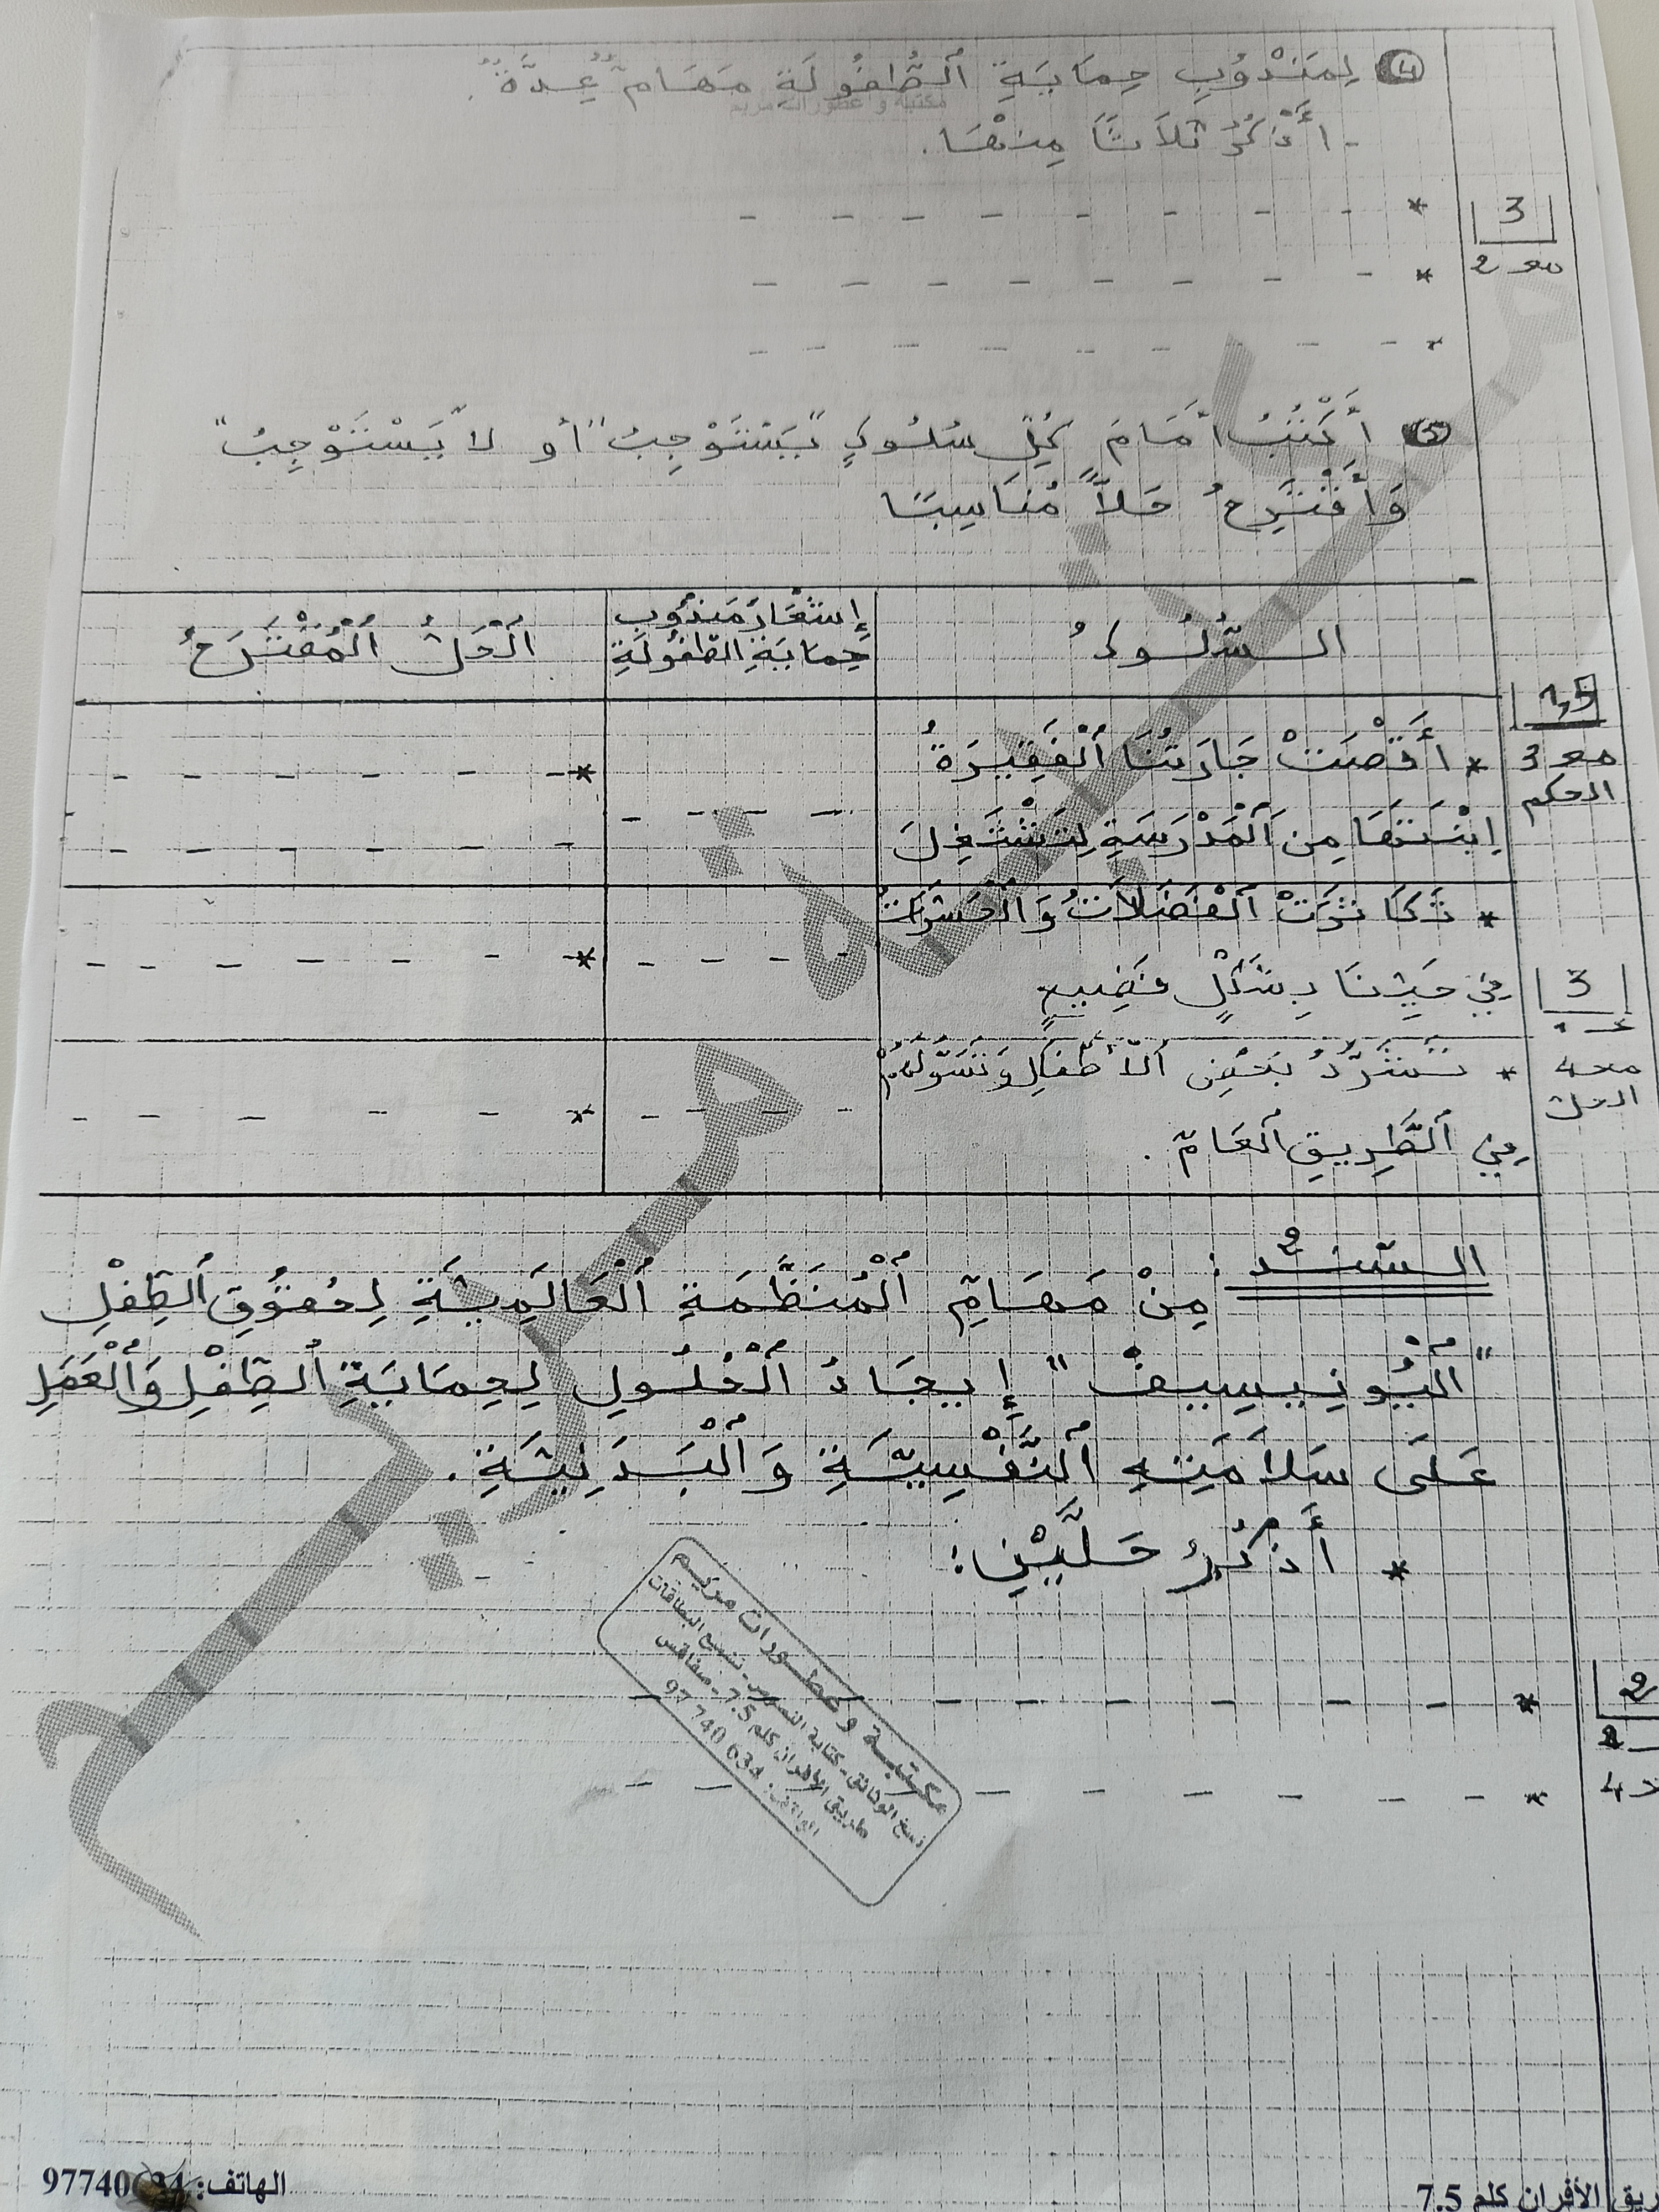 4 لِمَنْدُوبِ حِمَايَةِ اَلطُّفُولَةِ مَهَامٌّ عِدَّةٌ.
مكتبة و عطورات مريم
- أَذْكُرُ ثَلَاثًا مِنْهَا.
* - - - - - - - -
3
* - - - - - - - -
مع 2
* - - - - - - - -
5 أَكْتُبُ أَمَامَ كُلِّ سُلُوكٍ "يَسْتَوْجِبُ" أو "لَا يَسْتَوْجِبُ"
وَأَقْتَرِحُ حَلًّا مُنَاسِبًا
السُّلُوكُ
إِشْعَارَ مَنْدُوبِ حِمَايَةِ الطُّفُولَةِ
اَلْحَلُّ اَلْمُقْتَرَحُ
1,5
مع 3
الحكم
* أَقْصَتْ جَارَتُنَا اَلْفَقِيرَةُ
اِبْنَتَهَا مِنَ اَلْمَدْرَسَةِ لِتَشْتَغِلَ
* تَكَاثَرَتْ اَلْفَضَلَاتُ وَاَلْحَشَرَاتُ
فِي حَيِّنَا بِشَكْلٍ فَضِيعٍ
3
مع 4
الحل
* تَشَرُّدُ بَعْضِ اَلْأَطْفَالِ وَتَسَوُّلُهُمْ
فِي اَلطَّرِيقِ اَلْعَامِّ.
السند 2 : مِنْ مَهَامِّ اَلْمُنَظَّمَةِ اَلْعَالَمِيَّةِ لِحُقُوقِ اَلطِّفْلِ
"اَلْيُونِيسِيفْ" إِيجَادُ اَلْحُلُولِ لِحِمَايَةِ اَلطِّفْلِ وَاَلْعَمَلِ
عَلَى سَلَامَتِهِ اَلنَّفْسِيَّةِ وَاَلْبَدَنِيَّةِ.
* أَذْكُرُ حَلَّيْنِ:
* - - - - - - - -
2
* - - - - - - - -
مكتبة وعطورات مريم
نسخ الوثائق - كتابة النصوص - نسخ البطاقات
طريق الأفران كلم 7.5 - صفاقس
الهاتف: 97 740 634
الهاتف: 97740
ريق الأفران كلم 7.5